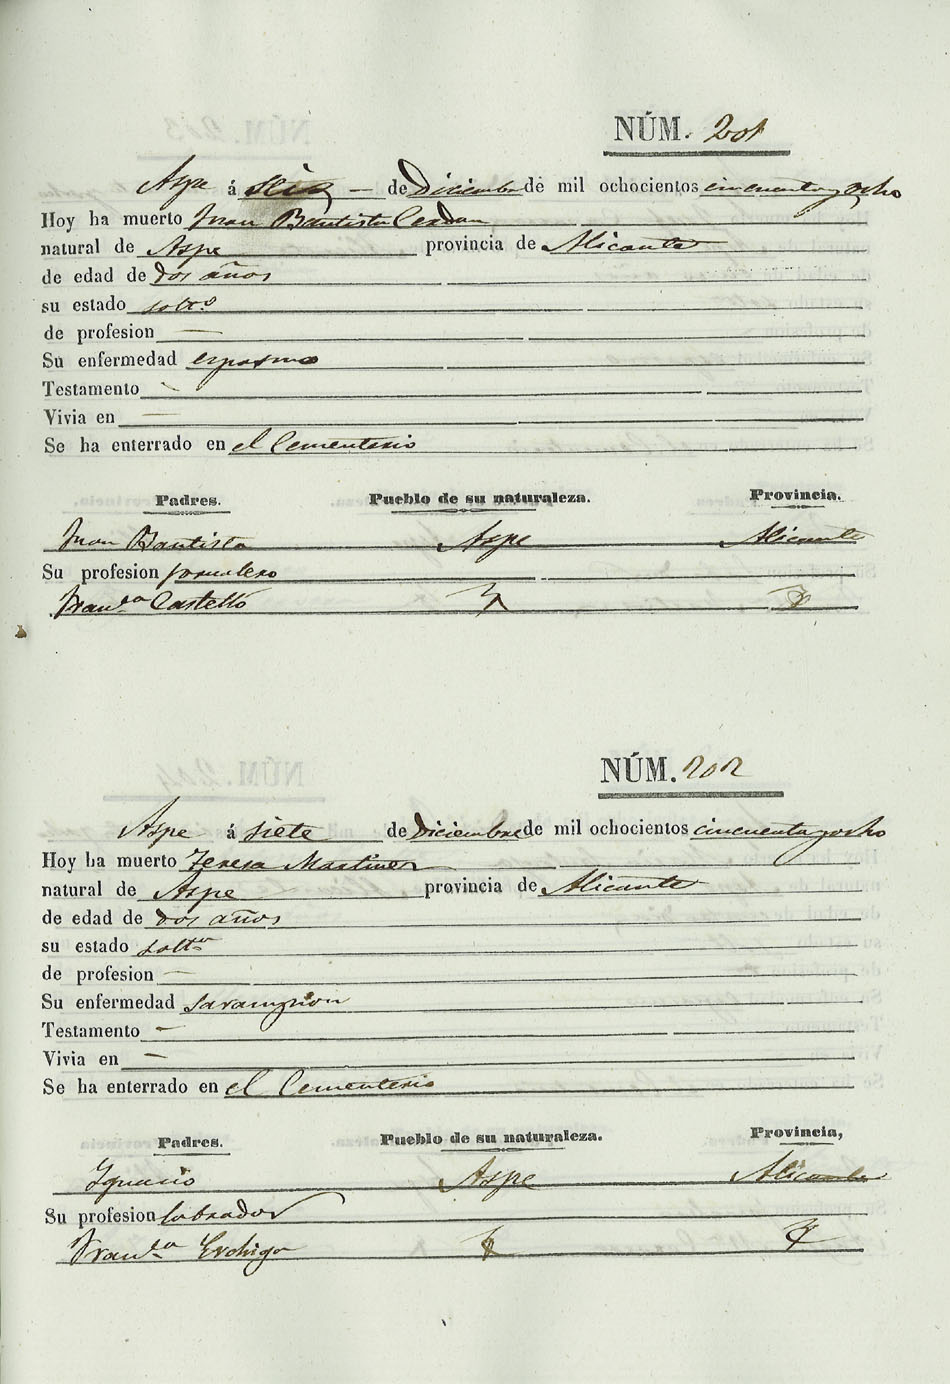 NÚM. 201
Aspe á seis de Diciembre de mil ochocientos cincuenta y ocho
Hoy ha muerto Juan Bautista Cerdan
natural de Aspe provincia de Alicante
de edad de dos años
su estado solt.º
de profesion —
Su enfermedad espasmo
Testamento —
Vivia en —
Se ha enterrado en el Cementerio
Padres. Pueblo de su naturaleza. Provincia.
Juan Bautista Aspe Alicante
Su profesion jornalero
Fran.ca Castelló
NÚM. 202
Aspe á siete de Diciembre de mil ochocientos cincuenta y ocho
Hoy ha muerto Teresa Martinez
natural de Aspe provincia de Alicante
de edad de dos años
su estado solt.ra
de profesion —
Su enfermedad sarampion
Testamento —
Vivia en —
Se ha enterrado en el Cementerio
Padres. Pueblo de su naturaleza. Provincia,
Ignacio Aspe Alicante
Su profesion labrador
Fran.ca